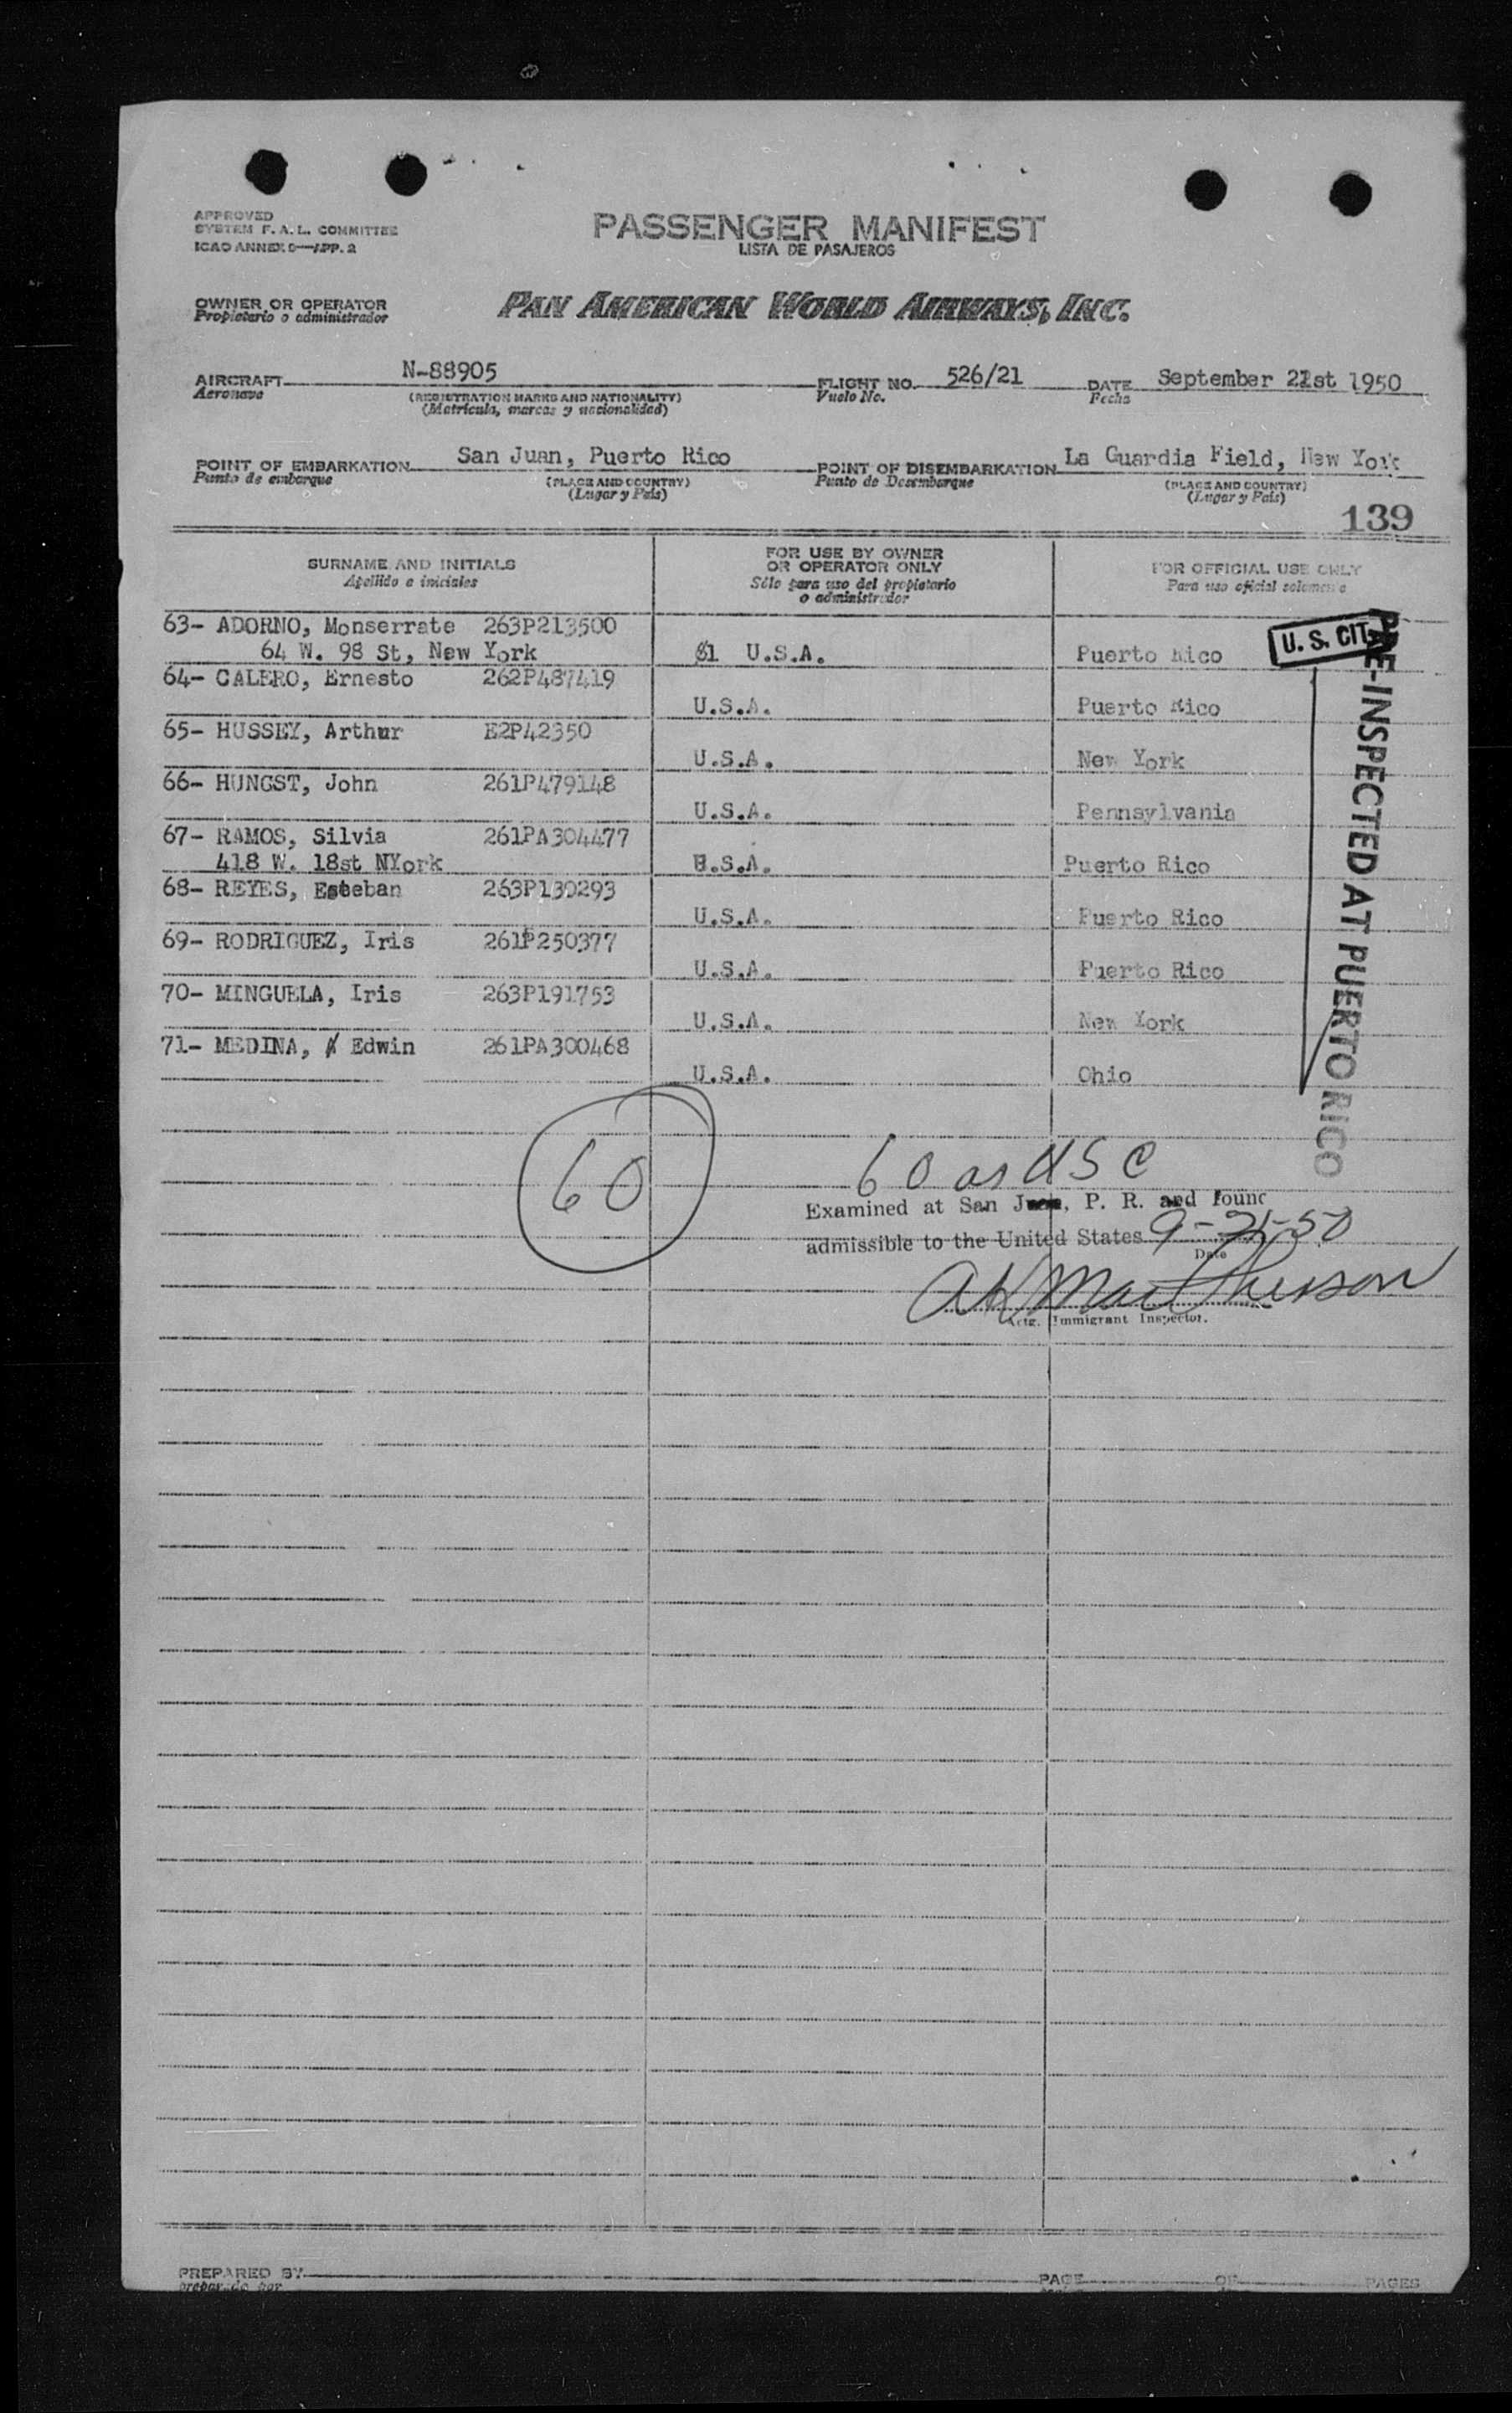 APPROVED
SYSTEM F. A. L. COMMITTEE
ICAO ANNEX 9—APP. 2
PASSENGER MANIFEST
LISTA DE PASAJEROS
OWNER OR OPERATOR
Propietario o administrador
PAN AMERICAN WORLD AIRWAYS, INC.
AIRCRAFT N-88905 FLIGHT NO. 526/21 DATE September 21st 1950
Aeronave (REGISTRATION MARKS AND NATIONALITY) Vuelo No. Fecha
(Matrícula, marcas y nacionalidad)
POINT OF EMBARKATION San Juan, Puerto Rico POINT OF DISEMBARKATION La Guardia Field, New York
Punto de embarque (PLACE AND COUNTRY) Punto de Desembarque (PLACE AND COUNTRY)
(Lugar y País) (Lugar y País)
139
SURNAME AND INITIALS
Apellido e iniciales
FOR USE BY OWNER
OR OPERATOR ONLY
Sólo para uso del propietario
o administrador
FOR OFFICIAL USE ONLY
Para uso oficial solamente
63- ADORNO, Monserrate 263P213500
64 W. 98 St, New York 1 U.S.A. Puerto Rico
U. S. CIT
64- CALERO, Ernesto 262P487419
U.S.A. Puerto Rico
65- HUSSEY, Arthur E2P42350
U.S.A. New York
66- HUNGST, John 261P479148
U.S.A. Pennsylvania
67- RAMOS, Silvia 261PA304477
418 W. 18st NYork U.S.A. Puerto Rico
68- REYES, Esteban 263P130293
U.S.A. Puerto Rico
69- RODRIGUEZ, Iris 261P250377
U.S.A. Puerto Rico
70- MINGUELA, Iris 263P191753
U.S.A. New York
71- MEDINA, Edwin 261PA300468
U.S.A. Ohio
PRE-INSPECTED AT PUERTO RICO
60
60 as USC
Examined at San Juan, P. R. and found
admissible to the United States 9-21-50
Date
AK MacPherson
Actg. Immigrant Inspector.
PREPARED BY PAGE OF PAGES
preparado por